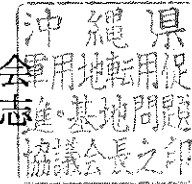 沖縄県
軍用地転用促
進・基地問題
協議会長之印
会志